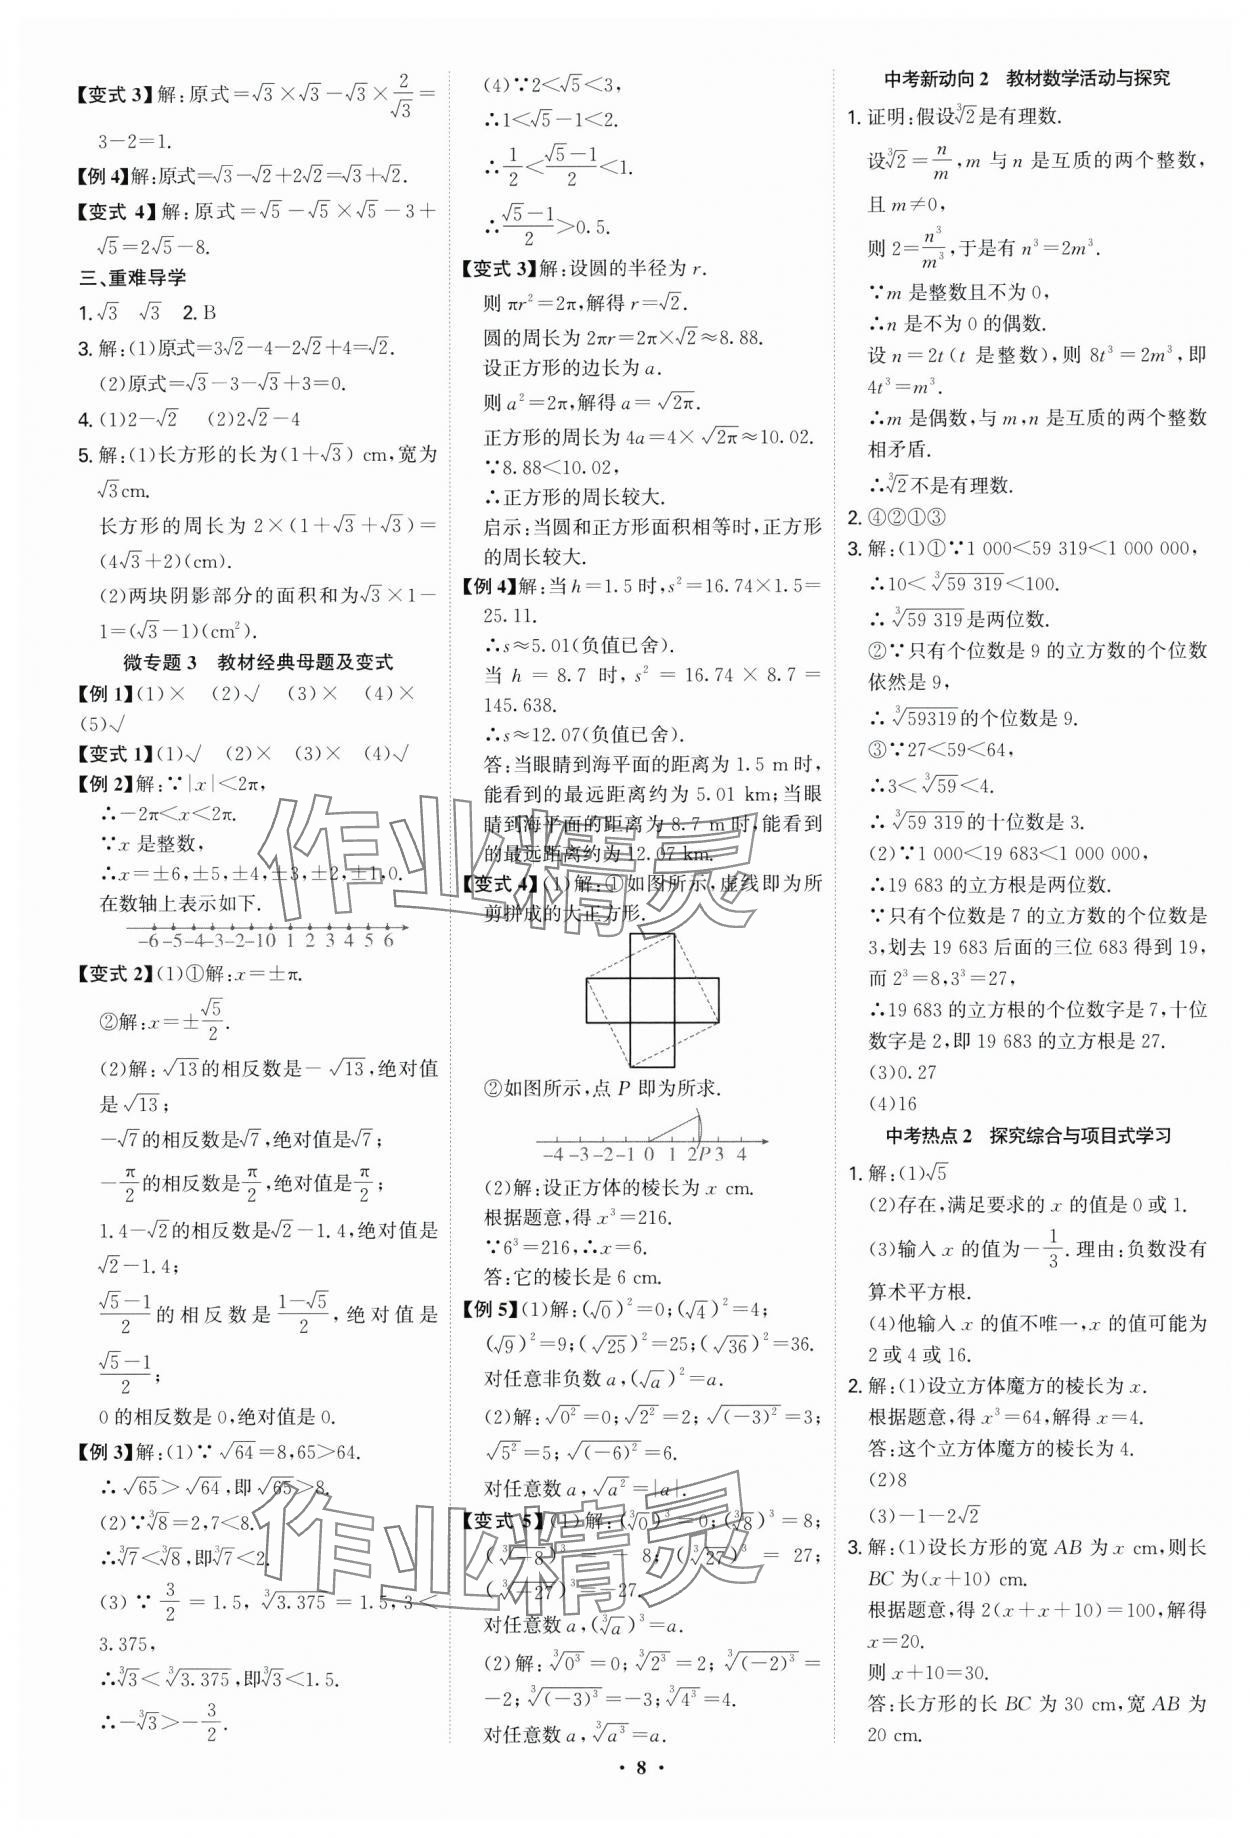 【变式 3】解:原式=√3×√3-√3×2/√3=
3-2=1.
【例 4】解:原式=√3-√2+2√2=√3+√2.
【变式 4】解:原式=√5-√5×√5-3+
√5=2√5-8.
三、重难导学
1.√3 √3 2.B
3.解:(1)原式=3√2-4-2√2+4=√2.
(2)原式=√3-3-√3+3=0.
4.(1)2-√2 (2)2√2-4
5.解:(1)长方形的长为(1+√3) cm,宽为
√3cm.
长方形的周长为 2×(1+√3+√3)=
(4√3+2)(cm).
(2)两块阴影部分的面积和为√3×1-
1=(√3-1)(cm²).
微专题 3 教材经典母题及变式
【例 1】(1)× (2)√ (3)× (4)×
(5)√
【变式 1】(1)√ (2)× (3)× (4)√
【例 2】解:∵|x|<2π,
∴-2π<x<2π.
∵x 是整数,
∴x=±6,±5,±4,±3,±2,±1,0.
在数轴上表示如下.
-6-5-4-3-2-10 1 2 3 4 5 6
【变式 2】(1)①解:x=±π.
②解:x=±√5/2.
(2)解:√13的相反数是-√13,绝对值
是√13;
-√7的相反数是√7,绝对值是√7;
-π/2的相反数是π/2,绝对值是π/2;
1.4-√2的相反数是√2-1.4,绝对值是
√2-1.4;
(√5-1)/2的相反数是(1-√5)/2,绝对值是
(√5-1)/2;
0 的相反数是 0,绝对值是 0.
【例 3】解:(1)∵√64=8,65>64.
∴√65>√64,即√65>8.
(2)∵∛8=2,7<8.
∴∛7<∛8,即∛7<2.
(3)∵3/2=1.5,∛3.375=1.5,3<
3.375,
∴∛3<∛3.375,即∛3<1.5.
∴-∛3>-3/2.
(4)∵2<√5<3,
∴1<√5-1<2.
∴1/2<(√5-1)/2<1.
∴(√5-1)/2>0.5.
【变式 3】解:设圆的半径为 r.
则 πr²=2π,解得 r=√2.
圆的周长为 2πr=2π×√2≈8.88.
设正方形的边长为 a.
则 a²=2π,解得 a=√2π.
正方形的周长为 4a=4×√2π≈10.02.
∵8.88<10.02,
∴正方形的周长较大.
启示:当圆和正方形面积相等时,正方形
的周长较大.
【例 4】解:当 h=1.5 时,s²=16.74×1.5=
25.11.
∴s≈5.01(负值已舍).
当 h=8.7 时,s²=16.74×8.7=
145.638.
∴s≈12.07(负值已舍).
答:当眼睛到海平面的距离为 1.5 m 时,
能看到的最远距离约为 5.01 km;当眼
睛到海平面的距离为 8.7 m 时,能看到
的最远距离约为 12.07 km.
【变式 4】(1)解:①如图所示,虚线即为所
剪拼成的大正方形.
②如图所示,点 P 即为所求.
-4-3-2-1 0 1 2P3 4
(2)解:设正方体的棱长为 x cm.
根据题意,得 x³=216.
∵6³=216,∴x=6.
答:它的棱长是 6 cm.
【例 5】(1)解:(√0)²=0;(√4)²=4;
(√9)²=9;(√25)²=25;(√36)²=36.
对任意非负数 a,(√a)²=a.
(2)解:√0²=0;√2²=2;√(-3)²=3;
√5²=5;√(-6)²=6.
对任意数 a,√a²=|a|.
【变式 5】(1)解:(∛0)³=0;(∛8)³=8;
(∛-8)³=-8;(∛27)³=27;
(∛-27)³=-27.
对任意数 a,(∛a)³=a.
(2)解:∛0³=0;∛2³=2;∛(-2)³=
-2;∛(-3)³=-3;∛4³=4.
对任意数 a,∛a³=a.
中考新动向 2 教材数学活动与探究
1.证明:假设∛2是有理数.
设∛2=n/m,m 与 n 是互质的两个整数,
且 m≠0,
则 2=n³/m³,于是有 n³=2m³.
∵m 是整数且不为 0,
∴n 是不为 0 的偶数.
设 n=2t(t 是整数),则 8t³=2m³,即
4t³=m³.
∴m 是偶数,与 m,n 是互质的两个整数
相矛盾.
∴∛2不是有理数.
2.④②①③
3.解:(1)①∵1 000<59 319<1 000 000,
∴10<∛59 319<100.
∴∛59 319是两位数.
②∵只有个位数是 9 的立方数的个位数
依然是 9,
∴∛59319的个位数是 9.
③∵27<59<64,
∴3<∛59<4.
∴∛59 319的十位数是 3.
(2)∵1 000<19 683<1 000 000,
∴19 683 的立方根是两位数.
∵只有个位数是 7 的立方数的个位数是
3,划去 19 683 后面的三位 683 得到 19,
而 2³=8,3³=27,
∴19 683 的立方根的个位数字是 7,十位
数字是 2,即 19 683 的立方根是 27.
(3)0.27
(4)16
中考热点 2 探究综合与项目式学习
1.解:(1)√5
(2)存在,满足要求的 x 的值是 0 或 1.
(3)输入 x 的值为-1/3.理由:负数没有
算术平方根.
(4)他输入 x 的值不唯一,x 的值可能为
2 或 4 或 16.
2.解:(1)设立方体魔方的棱长为 x.
根据题意,得 x³=64,解得 x=4.
答:这个立方体魔方的棱长为 4.
(2)8
(3)-1-2√2
3.解:(1)设长方形的宽 AB 为 x cm,则长
BC 为(x+10) cm.
根据题意,得 2(x+x+10)=100,解得
x=20.
则 x+10=30.
答:长方形的长 BC 为 30 cm,宽 AB 为
20 cm.
· 8 ·
作业精灵
作业精灵